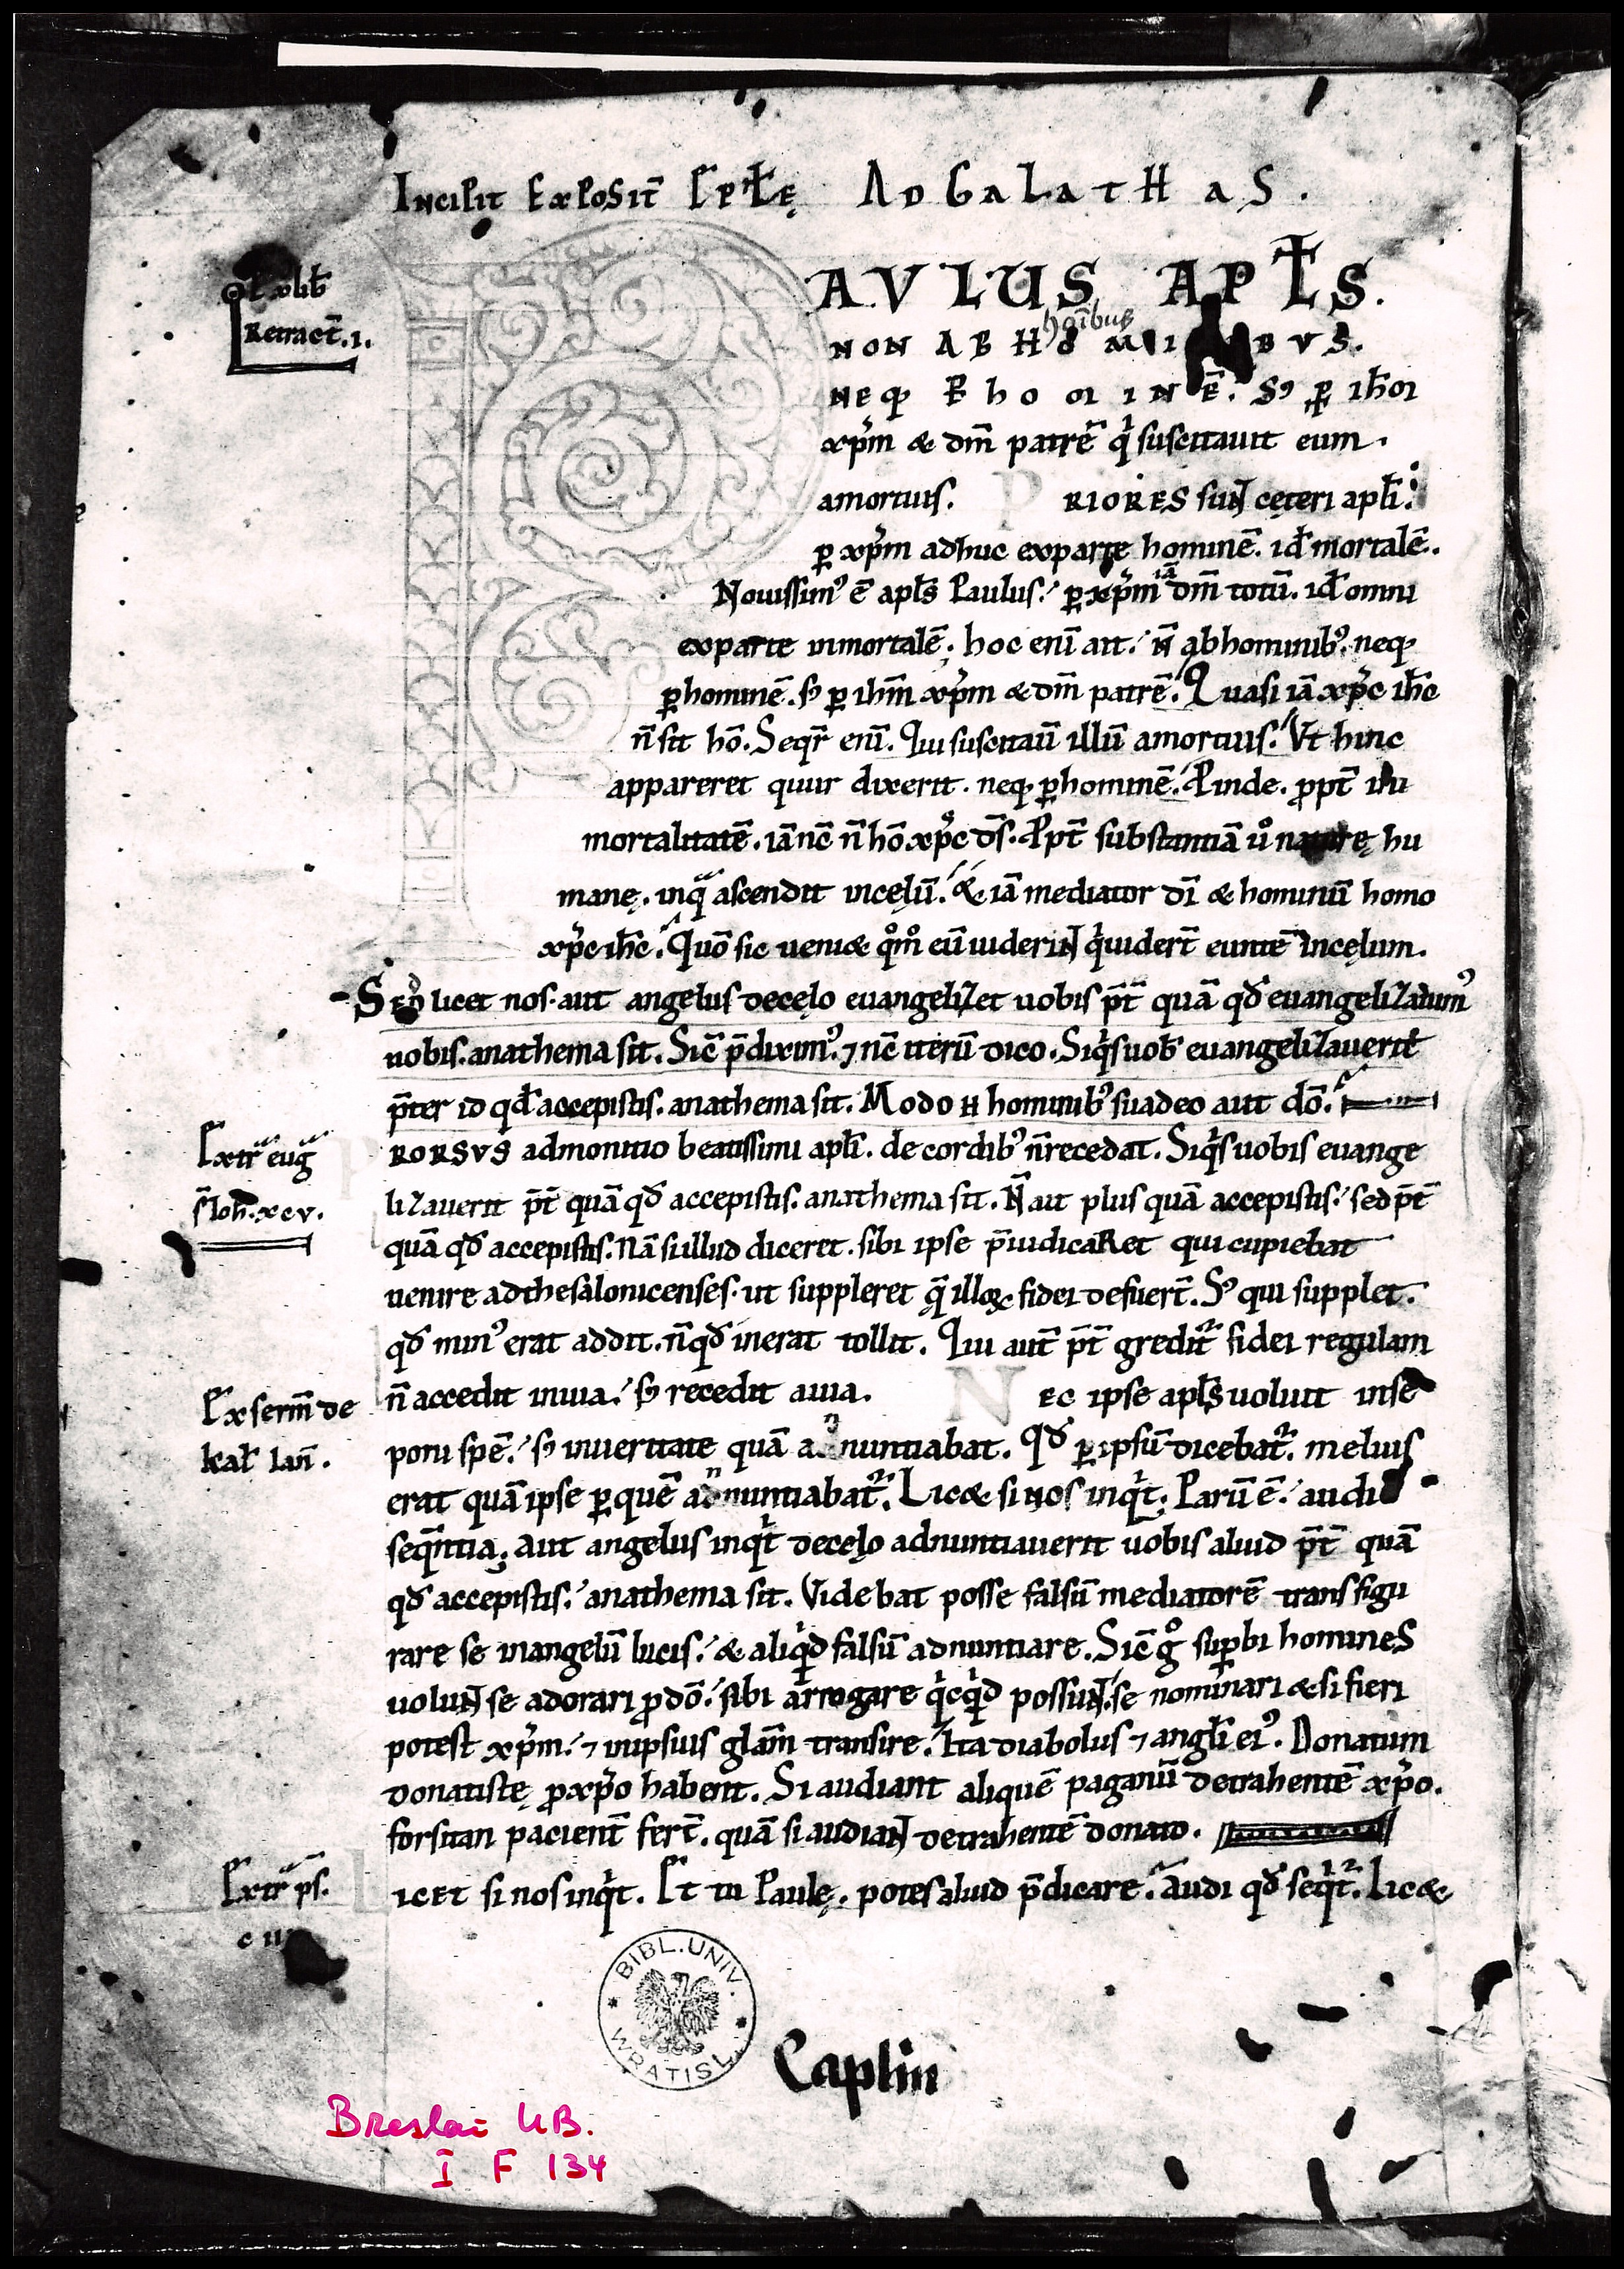 Incipit Exposit̄ Epl̄ę Ad Galathas.
AVLUS APL̄S.
Ex lib̄
Retract̄.i.
hoībus
NON AB HOMINIBVS.
NEQ; P hominē. S; ꝑ ih̄m
xp̄m & dm̄ patrē q̇ suscitauit eum.
amortuis. P RIORES sunt cęteri apl̄i.
ꝑ xp̄m adhuc exparte hominē. id̄ mortalē.
Nouissim᾽ ē apl̄s Paulus. ꝑ xp̄m iā dm̄ totū. id̄ omni
exparte inmortalē; hoc enī ait. n̄ abhominib᾽. neq;
ꝑhominē. s; ꝑ ih̄m xp̄m & dm̄ patrē. Quasi iā xp̄c ih̄c
n̄ sit hō. Seqr̄ enī. Qui suscitau̅ illū amortuis. Vt hinc
appareret quur dixerit. neq; ꝑhominē. Pinde. ꝓpt̄ in
mortalitatē. iā nc̄ n̄ hō xp̄c d̄s. Ppt̄ substantiā u̇ naturę hu
manę. inq̄ ascendit incęlū. & iā mediator dī & hominū homo
xp̄c ih̄c. Quō sic ueni& qm̊ eū uiderint q̇uidert̄ euntē incęlum.
Sed licet nos. aut angelus decęlo euangelizet uobis p̄t̄ quā qd̄ euangelizauim᾽
uobis. anathema sit. Sic̄ p̄dixim᾽. ⁊ nc̄ iterū dico. Siq̇s uob̄ euangelizauerit
p̄ter id qd̄ accepistis. anathema sit. Modo n̄ hominib᾽ suadeo aut dō.
Extr̄ eug̃
s̄ Ioh̄. xcv.
RORSVS admonitio beatissimi apl̄i. de cordib᾽ n̄recedat. Siq̇s uobis euange
lizauerit p̄t̄ quā qd̄ accepistis. anathema sit. N̄ ait plus quā accepistis. sed p̄t̄
quā qd̄ accepistis. Nā si illud diceret. sibi ipse p̄iudicaRet qui cupiebat
uenire adthesalonicenses. ut suppleret q̄ illoꝝ fidei defuert̄. S; qui supplet.
qd̄ min᾽ erat addit. n̄ qd̄ inerat tollit. Qui aut̄ p̄t̄ gredit᷑ fidei regulam
n̄ accedit inuia. s; recedit auia. N EC ipse apl̄s uoluit inse
Ex serm̄ de
kal̄ Ian̄.
poni spē. s; inueritate quā adnuntiabat. Qd̄ ꝑ ipsū dicebat᷑. melius
erat quā ipse ꝑ quē adnuntiabat᷑. Lic& si nos inq̇t. Parū ē. audi
seq̄ntia; aut angelus inq̇t decęlo adnuntiauerit uobis aliud p̄t̄ quā
qd̄ accepistis. anathema sit. Videbat posse falsū mediatorē transfigu
rare se inangelū lucis. & aliq̇d falsū adnuntiare. Sic̄ g̊ suꝑbi homines
uolunt se adorari ꝓ dō. sibi arrogare q̇cq̇d possunt. se nominari & si fieri
potest xp̄m. ⁊ inipsius glām transire. Ita diabolus ⁊ angl̄i ei᾽. Donatum
donatistę ꝓ xp̄o habent. Si audiant aliquē paganū detrahentē xp̄o.
forsitan pacient̄ fert̄. quā si audiant detrahentē donato.
Extr̄ ps̄.
c iii
L ICET si nos inq̇t. Et tu Paulę. potes aliud p̄dicare. Audi qd̄ seq̇t᷑. Lic&
BIBL. UNIV. * WRATISL. *
Caplin
Breslau UB.
I F 134